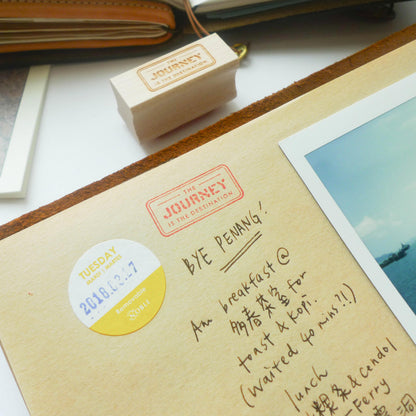 THE
JOURNEY
IS THE DESTINATION
THE
JOURNEY
IS THE DESTINATION
TUESDAY
2016.03.17
BYE PENANG!
Am breakfast @
多春茶室 for
toast & kopi.
(Waited 40 mins?!)
lunch
& Cendol
Ferry